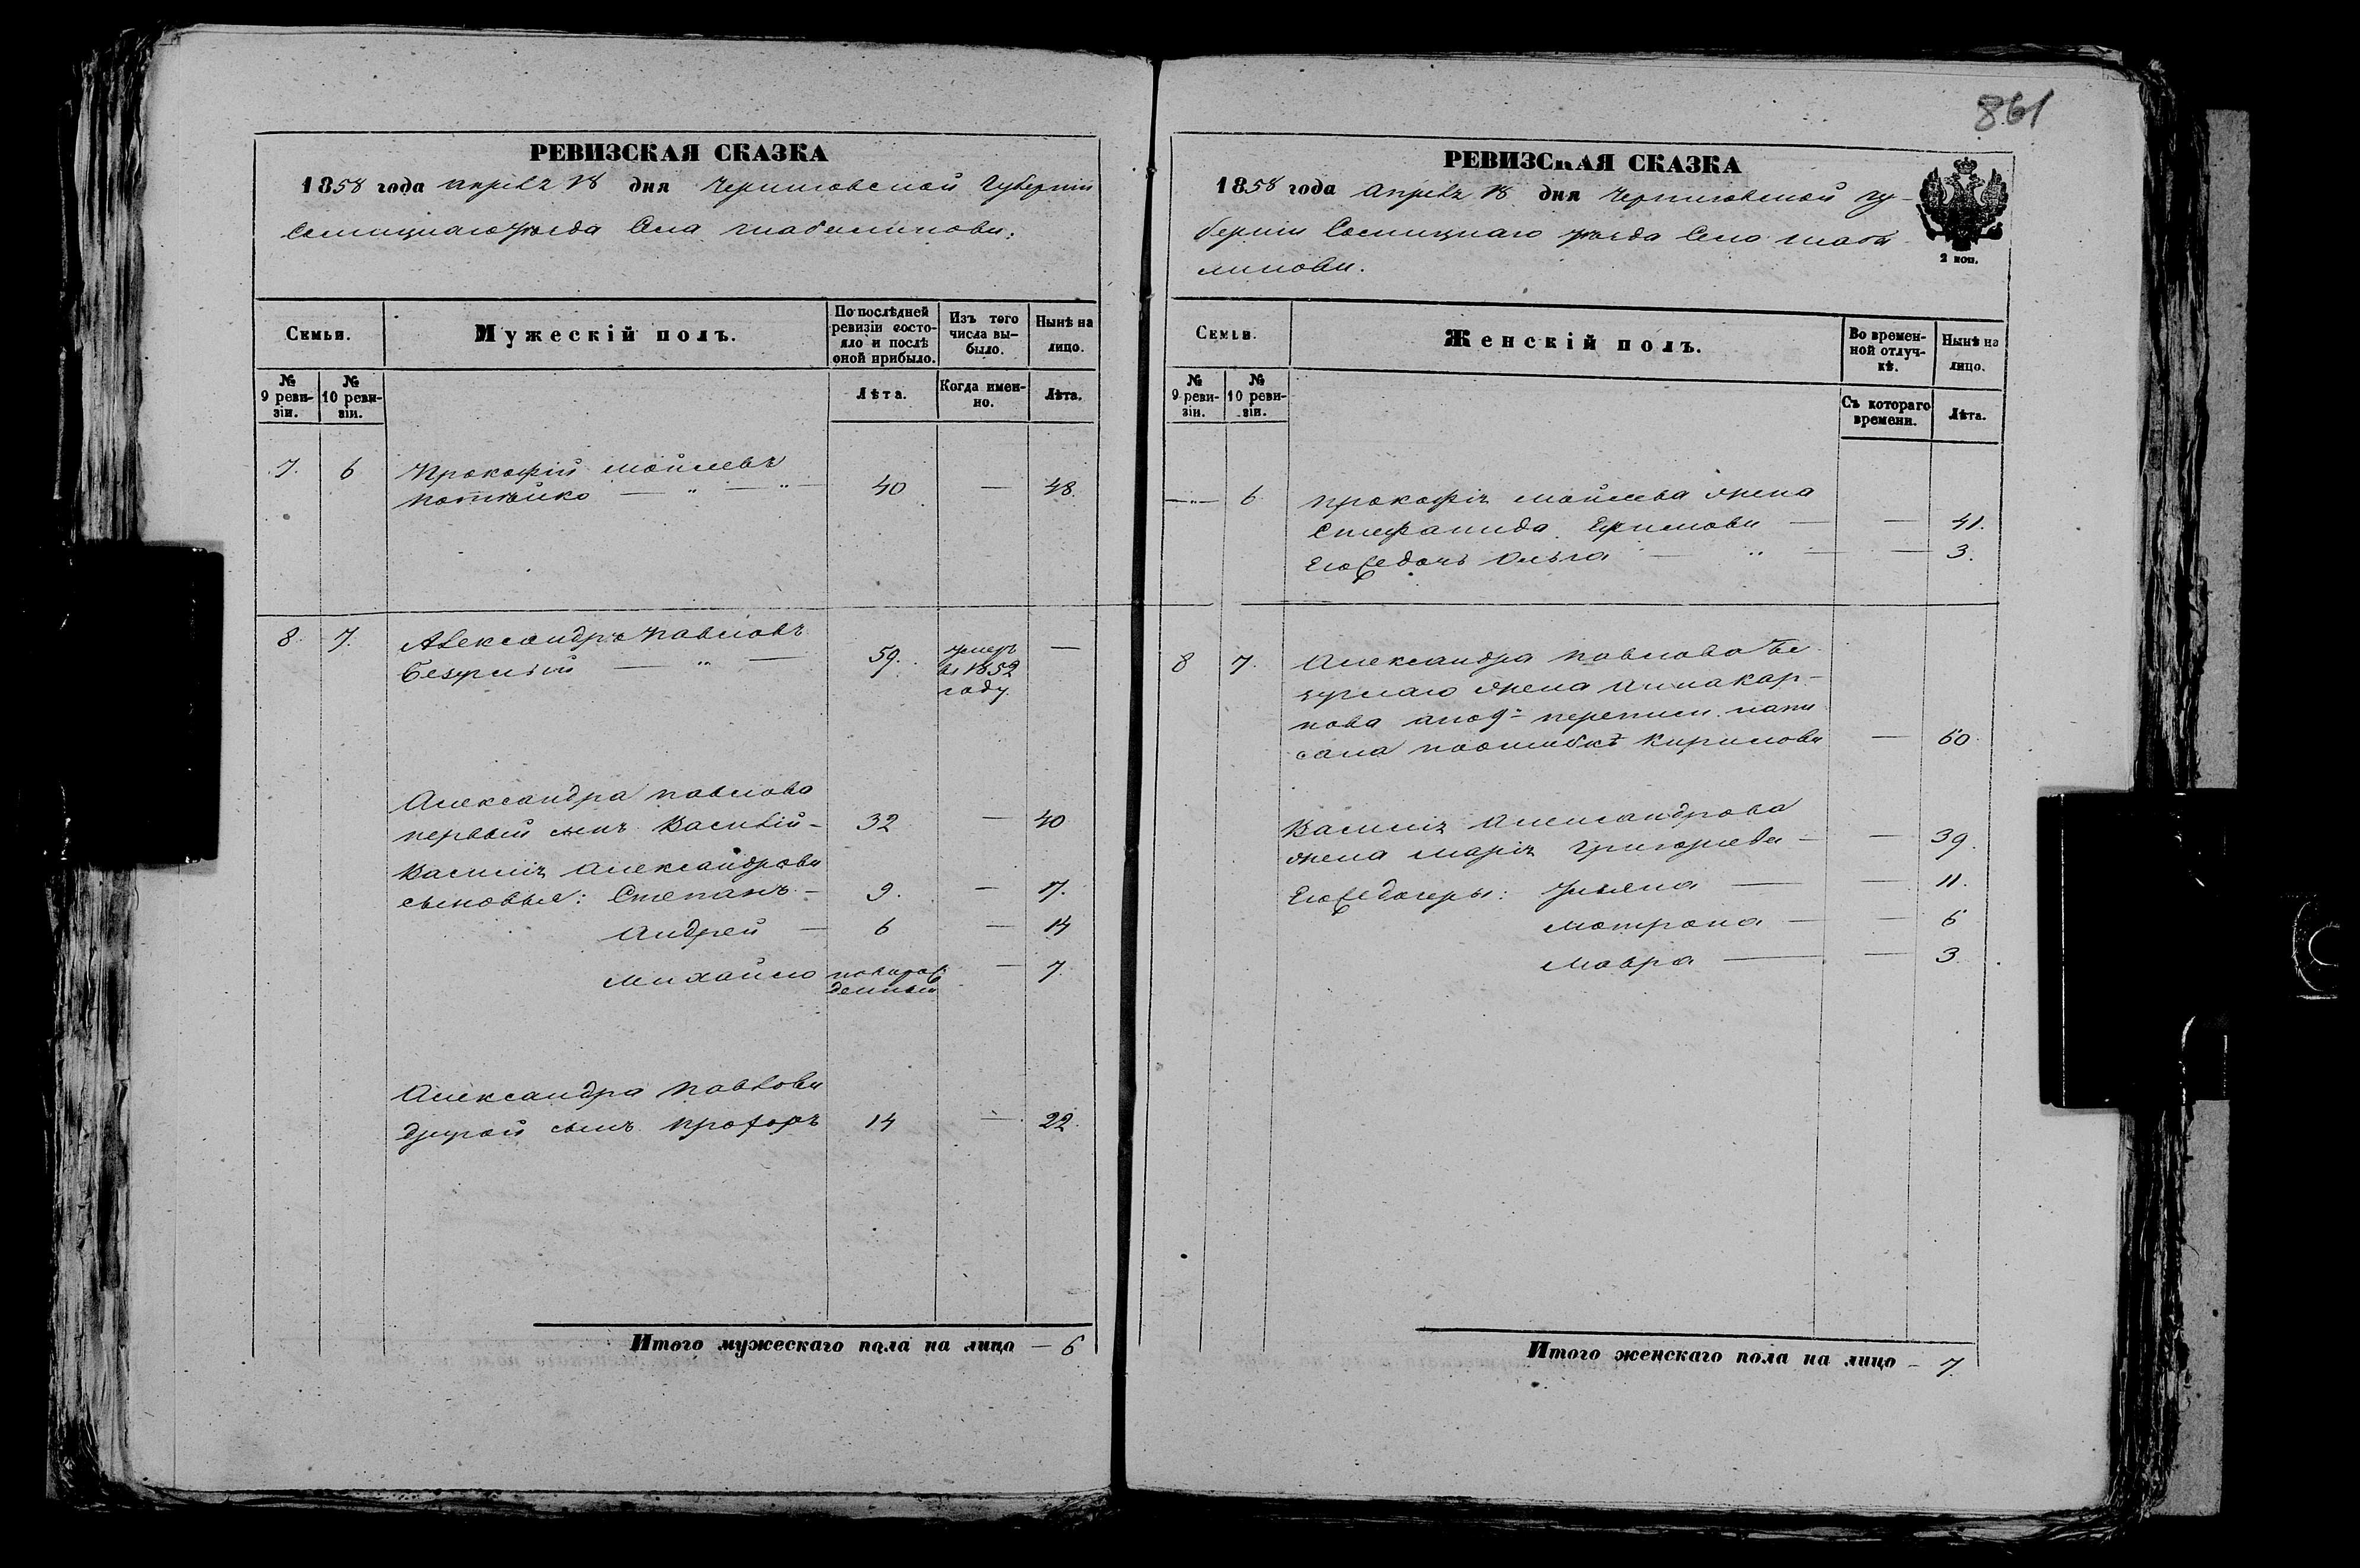 861
РЕВИЗСКАЯ СКАЗКА
1858 года Апреля 18 дня Черниговской Губернии
Сосницкаго уезда Села Шабалинова.
Семьи.
Мужескій полъ.
По последней ревизіи состояло и послѣ оной прибыло.
Изъ того числа выбыло.
Нынѣ на лицо.
№ 9 ревизіи.
№ 10 ревизіи.
Лѣта.
Когда именно.
Лѣта.
7. 6 Прокофій Мойсеевъ
Потейко — " — " — 40 — 48.
8. 7. Александръ Павловъ
Безуглый — " — 59. умеръ —
въ 1852
году
Александра Павлова
первый сынъ Василій - 32 — 40
Василія Александрова
сыновья: Степанъ - 9. — 17.
Андрей — 6 — 14
Михайло новорож — 7.
денный
Александра Павлова
другой сынъ Прохоръ 14 — 22.
Итого мужескаго пола на лицо — 6
РЕВИЗСКАЯ СКАЗКА
1858 года Апреля 18 дня Черниговской Гу-
берніи Сосницкаго уезда Село Шаба
линова.
2 коп.
Семьи.
Женскій полъ.
Во временной отлучкѣ.
Нынѣ на лицо.
№ 9 ревизіи.
№ 10 ревизіи.
Съ котораго времени.
Лѣта.
— " — 6 Прокофія Мойсеева жена
Стефанида Ефимова — — 41.
Его же дочь Ольга — " — — 3.
8 7. Александра Павлова Бе
зуглаго жена Анна Кар-
пова по 9й переписи напи
сана поошибке Кирилова — 60
Василія Александрова
жена Марія Григорьева — — 39.
Его же дочеры: Ульяна — — 11.
Мотрона — — 6
Мавра — — 3.
Итого женскаго пола на лицо — 7.